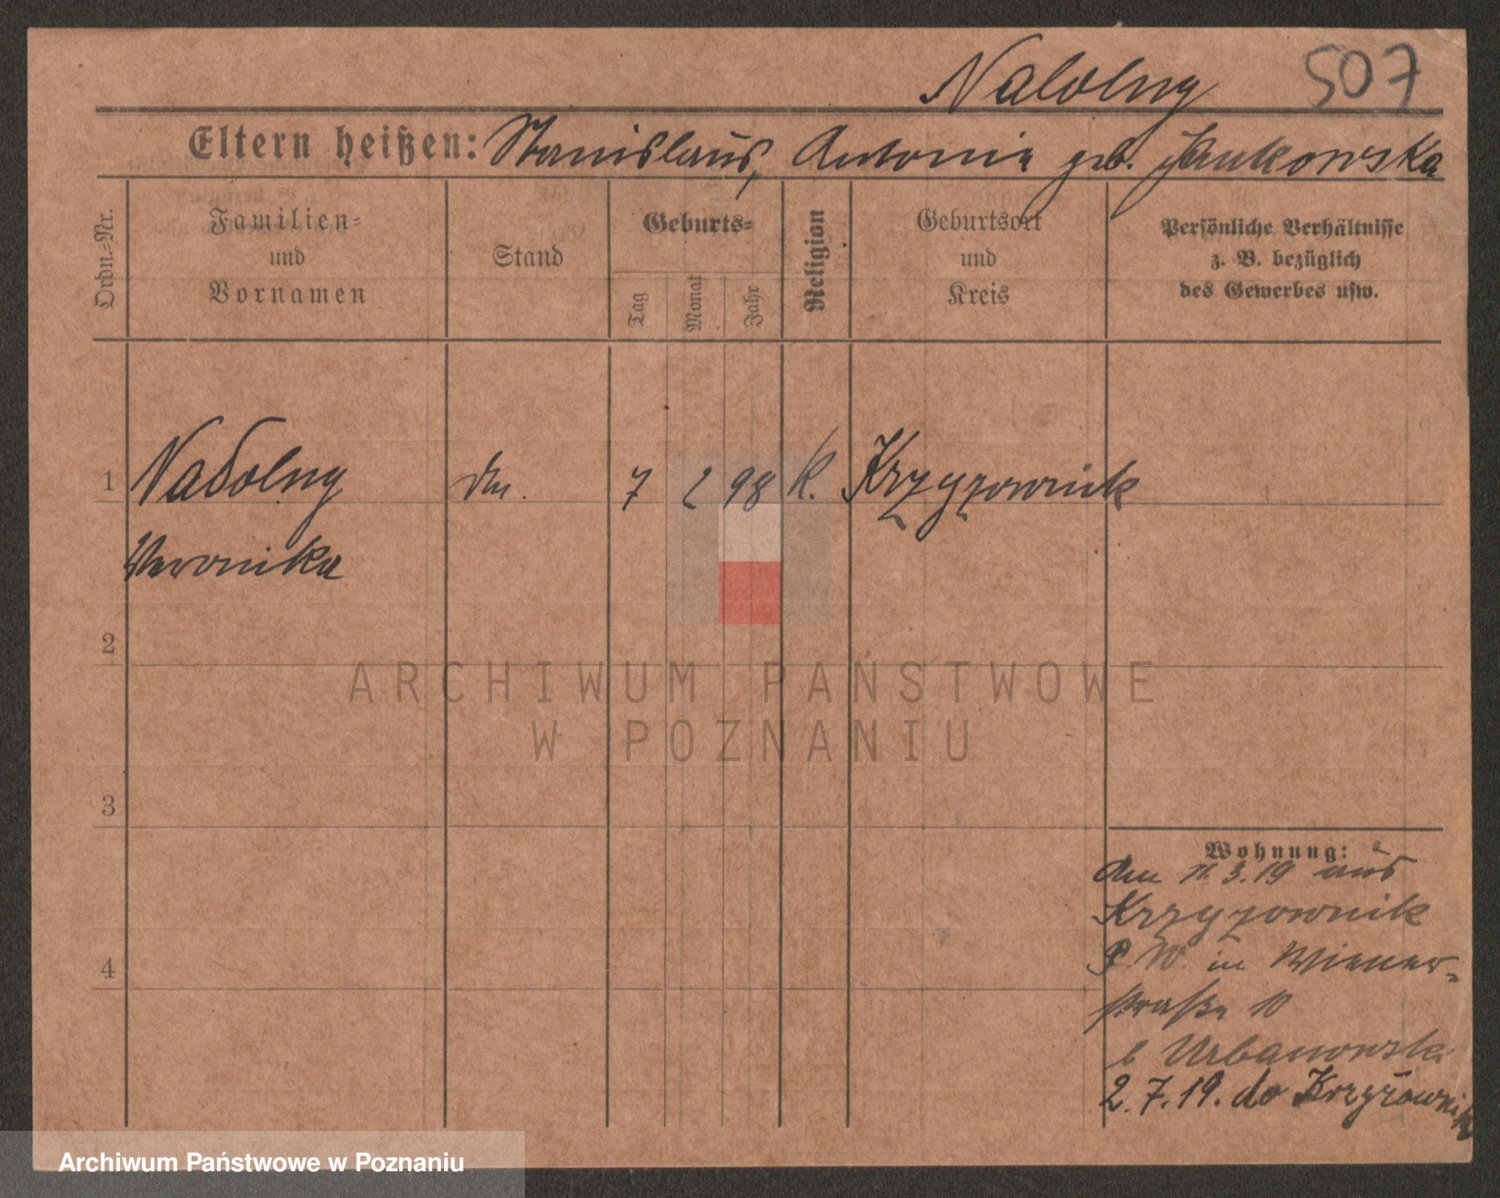 Nadolny 507
Eltern heißen: Stanislaus, Antonie geb. Jankowska
Ordn.-Nr.
Familien-
und
Vornamen
Stand
Geburts-
Tag
Monat
Jahr
Religion
Geburtsort
und
Kreis
Persönliche Verhältnisse
z. B. bezüglich
des Gewerbes usw.
1 Nadolny 7 2 98 K. Krzyzownik
Veronika
2
3
4
Wohnung:
den 11.3.19 aus
Krzyzownik
P. W. in Wiener-
straße 10
b Urbanowski
2.7.19. do Krzyżownik
ARCHIWUM PAŃSTWOWE
W POZNANIU
Archiwum Państwowe w Poznaniu